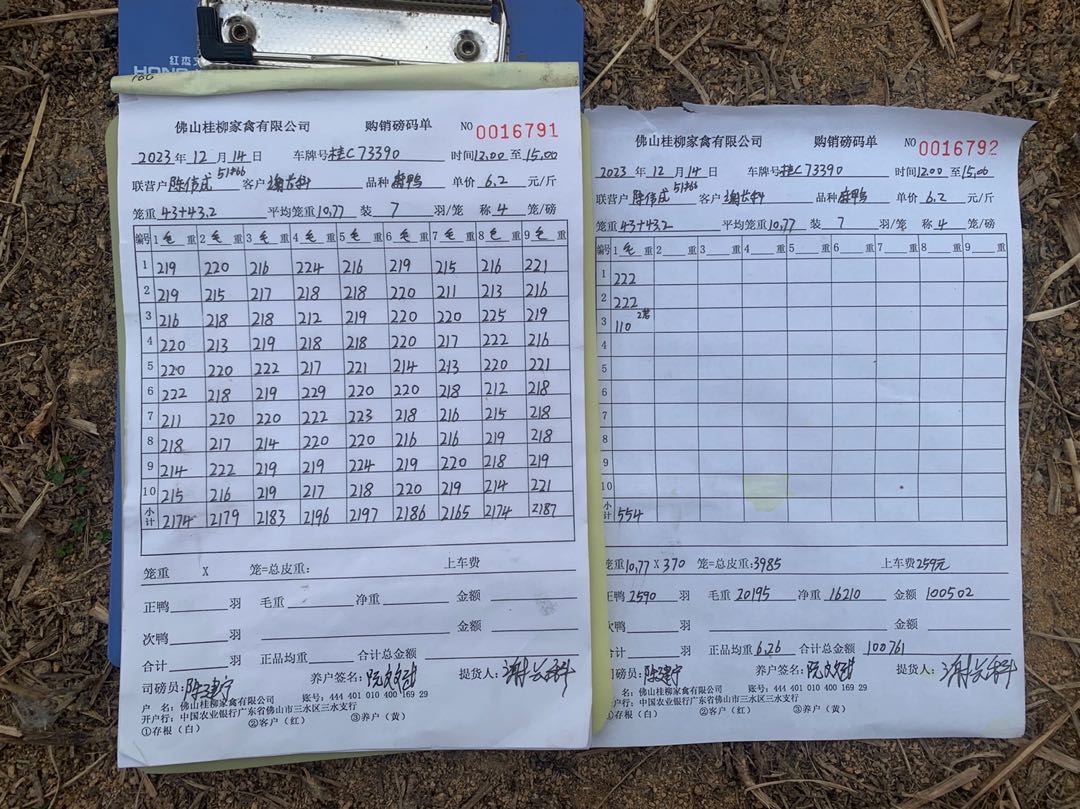 红杰
160
佛山桂柳家禽有限公司 购销磅码单 NO 0016791
2023年12月14日 车牌号桂C73390 时间12.00至15.00
联营户陈伟成 客户谢长科 品种 单价6.2元/斤
笼重43+43.2 平均笼重10.77 装7羽/笼 称4笼/磅
编号 1毛重 2毛重 3毛重 4毛重 5毛重 6毛重 7毛重 8毛重 9毛重
1 219 220 216 224 216 219 215 216 221
2 219 215 217 218 218 220 211 213 216
3 216 218 218 212 219 220 220 225 219
4 220 213 219 218 218 220 217 222 216
5 220 220 222 217 221 214 213 220 221
6 222 218 219 229 220 220 218 212 218
7 211 220 220 222 223 218 216 215 218
8 218 217 214 220 220 216 216 219 218
9 214 222 219 219 224 219 220 218 219
10 215 216 219 217 218 220 219 214 221
小计 2174 2179 2183 2196 2197 2186 2165 2174 2187
笼重 X 笼=总皮重: 上车费
正鸭 羽 毛重 净重 金额
次鸭 羽 金额
合计 羽 正品均重 合计总金额
司磅员:陈建宁 养户签名: 提货人:谢长科
户 名:佛山桂柳家禽有限公司 账号:444 401 010 400 169 29
开户行:中国农业银行广东省佛山市三水区三水支行
①存根(白) ②客户(红) ③养户(黄)
佛山桂柳家禽有限公司 购销磅码单 NO 0016792
2023年12月14日 车牌号桂C73390 时间12.00至15.00
联营户陈伟成 客户谢长科 品种 单价6.2元/斤
笼重43+43.2 平均笼重10.77 装7羽/笼 称4笼/磅
编号 1毛重 2重 3重 4重 5重 6重 7重 8重 9重
1 222
2 222
3 110 2笼
4
5
6
7
8
9
10
小计 554
笼重10.77X370 笼=总皮重:3985 上车费259元
正鸭2590羽 毛重20195 净重16210 金额100502
次鸭 羽 金额
合计 羽 正品均重6.26 合计总金额100761
司磅员:陈建宁 养户签名: 提货人:谢长科
名:佛山桂柳家禽有限公司 账号:444 401 010 400 169 29
行:中国农业银行广东省佛山市三水区三水支行
①存根(白) ②客户(红) ③养户(黄)